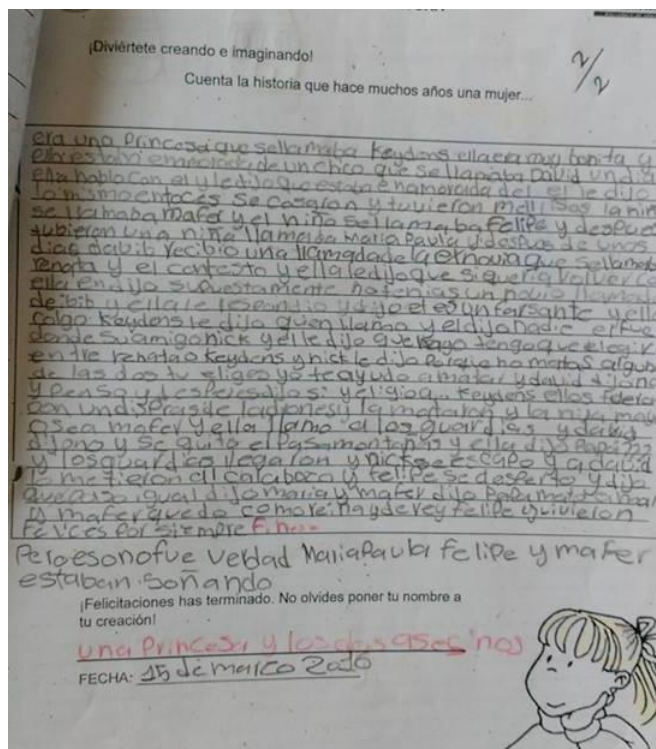 ¡Diviértete creando e imaginando!
2/2
Cuenta la historia que hace muchos años una mujer...
era una princesa que sellamaba Keydens ella era muy bonita y
ella estaba enamorada de un chico que se llamaba David un día
ella hablo con el y le dijo que estaba enamorada del el le dijo
lo mismo entoces se casaron y tuvieron mellisos la niñ
se llamaba mafer y el niño se llamaba felipe y despues
tubieron una niña llamada maria Paula y despues de unos
dias dabib recibio una llamada de la exnovia que se llamaba
renata y el contesto y ella le dijo que si queria volver co
ella en dijo supuestamente no tenias un novio llamado
de bib y ella le respondio y dijo el es un farsante y ell
colgo Keydens le dijo quen llamo y el dijo nadie el fue
donde su amigo nick y el le dijo que hago tengo que elegir
entre renata o Keydens y nick le dijo porque no matas algun
de las dos tu eliges yo te ayudo a matar y david dijo no
y penso y despues dijo si y eligio a Keydens ellos fueron
con un disfras de ladrones y la mataron y la nija may
osea mafer y ella llamo a los guardias y david
dijo no y se quito el pasamontañas y ella dijo papa
y los guardias llegaron y nick se escapo y a david
lo metieron al calabozo y felipe se desperto y dijo
que paso igual dijo maria y mafer dijo papa mato a mama
y mafer quedo como reina y de rey felipe y vivieron
felices por siempre fin
Pero eso no fue verdad Maria Paula felipe y mafer
estaban soñando
¡Felicitaciones has terminado. No olvides poner tu nombre a
tu creación!
una Princesa y los dos asesinos
FECHA: 15 de marco